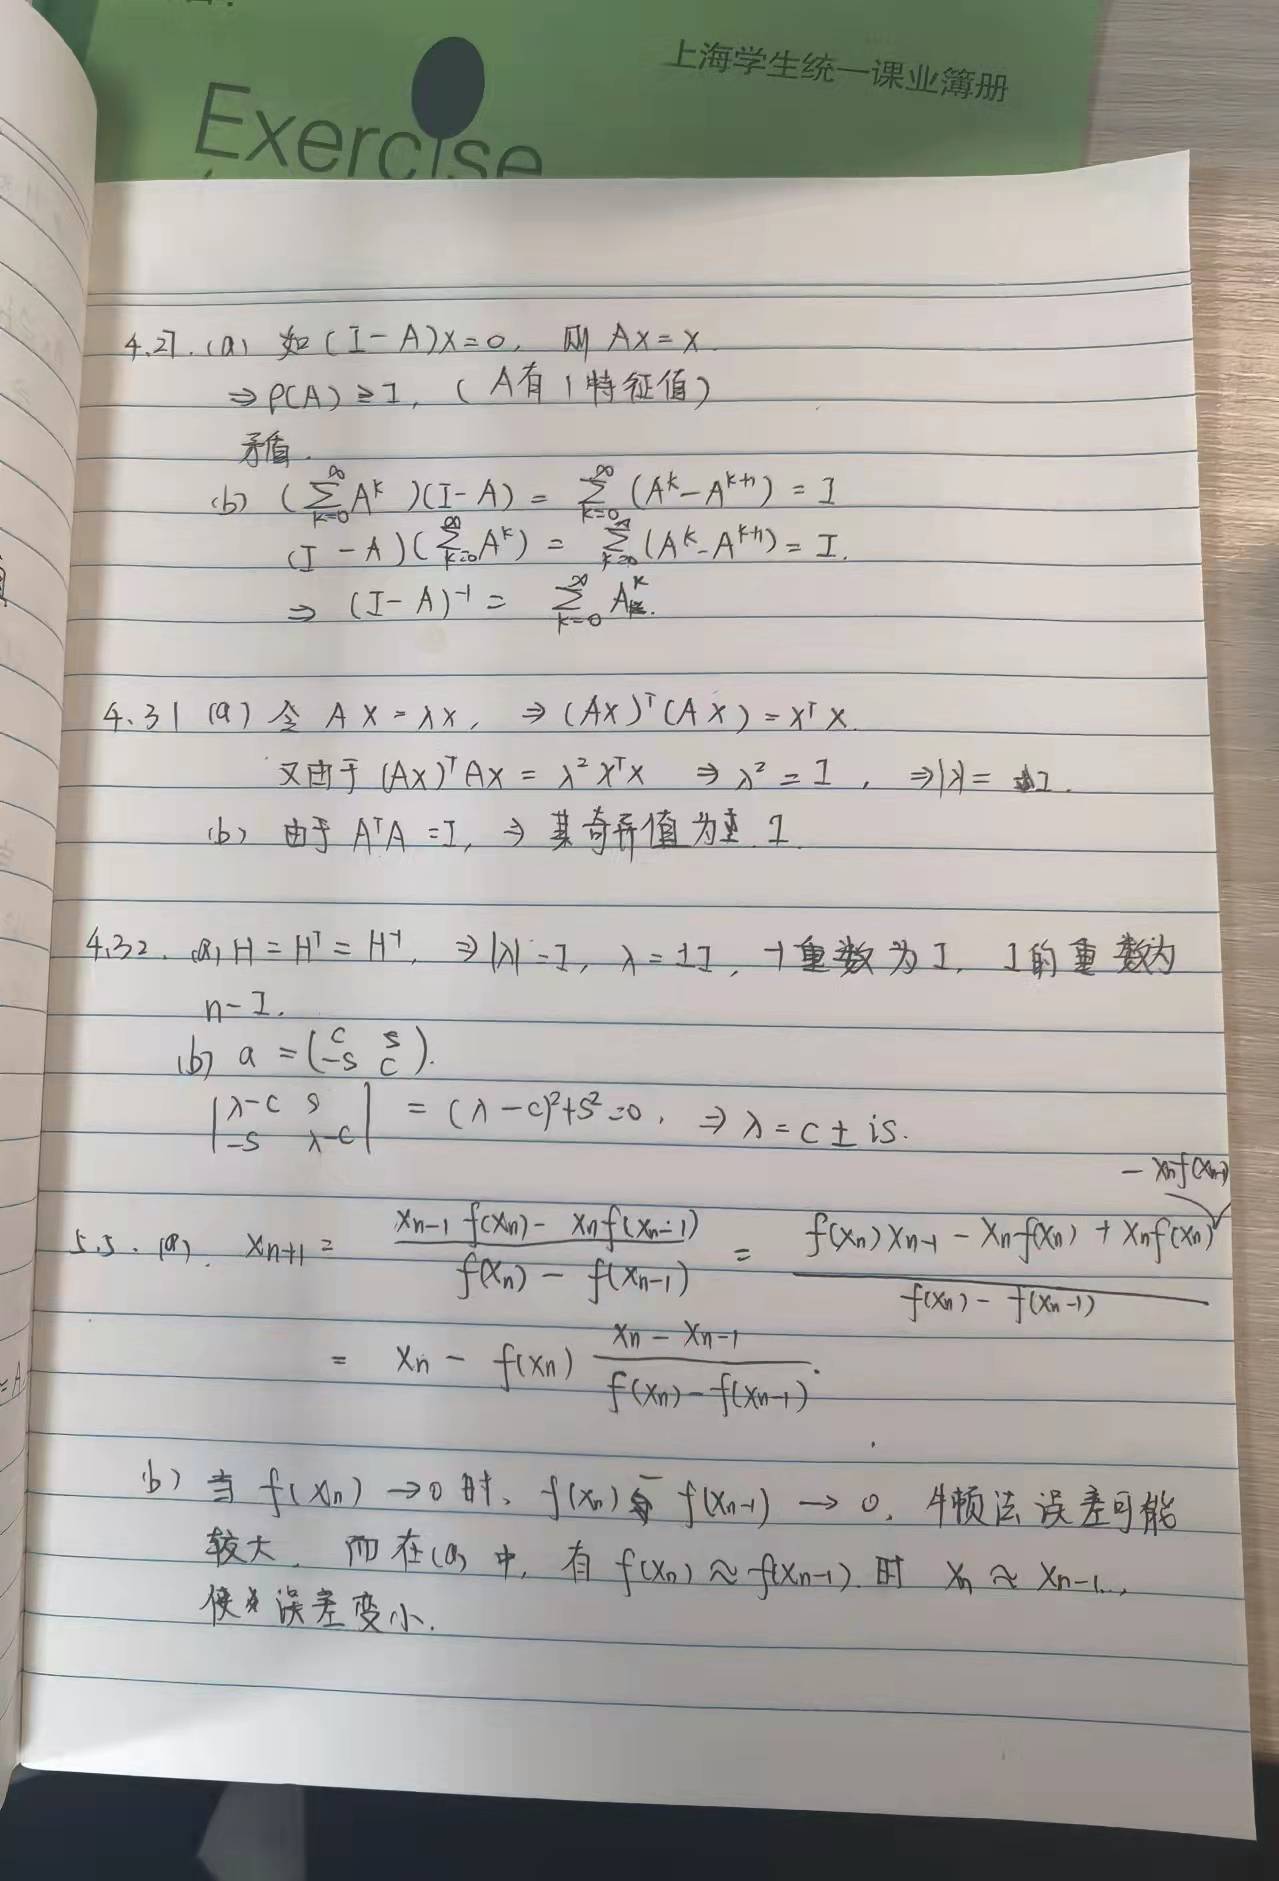 上海学生统一课业簿册
Exercise
4.27. (a) 如 (I-A)x=0, 则 Ax=x.
⇒ρ(A)≥1, (A有1特征值)
矛盾.
(b) (∑_{k=0}^{∞} A^k)(I-A) = ∑_{k=0}^{∞} (A^k - A^{k+1}) = I
(I-A)(∑_{k=0}^{∞} A^k) = ∑_{k=0}^{∞} (A^k - A^{k+1}) = I.
⇒ (I-A)^{-1} = ∑_{k=0}^{∞} A^k.
4.31 (a) 令 Ax=λx, ⇒ (Ax)^T(Ax)=x^T x.
又由于 (Ax)^T Ax = λ² x^T x ⇒ λ² = 1, ⇒|λ| = 1.
(b) 由于 A^T A = I, ⇒ 其奇异值为 1.
4.32. (a) H = H^T = H^{-1}, ⇒|λ|=1, λ=±1, -1重数为1, 1的重数为
n-1.
(b) a = (c s
-s c).
|λ-c s
-s λ-c| = (λ-c)²+s²=0, ⇒ λ = c ± is.
- x_n f(x_{n-1})
5.5. (a). x_{n+1} = \frac{x_{n-1} f(x_n) - x_n f(x_{n-1})}{f(x_n) - f(x_{n-1})} = \frac{f(x_n) x_{n-1} - x_n f(x_n) + x_n f(x_n)}{f(x_n) - f(x_{n-1})}
= x_n - f(x_n) \frac{x_n - x_{n-1}}{f(x_n) - f(x_{n-1})}.
b) 当 f(x_n) →0 时, f(x_n) - f(x_{n-1}) → 0, 牛顿法误差可能
较大, 而在(a)中, 有 f(x_n) ≈ f(x_{n-1}) 时 x_n ≈ x_{n-1},
使 误差变小.
≈A